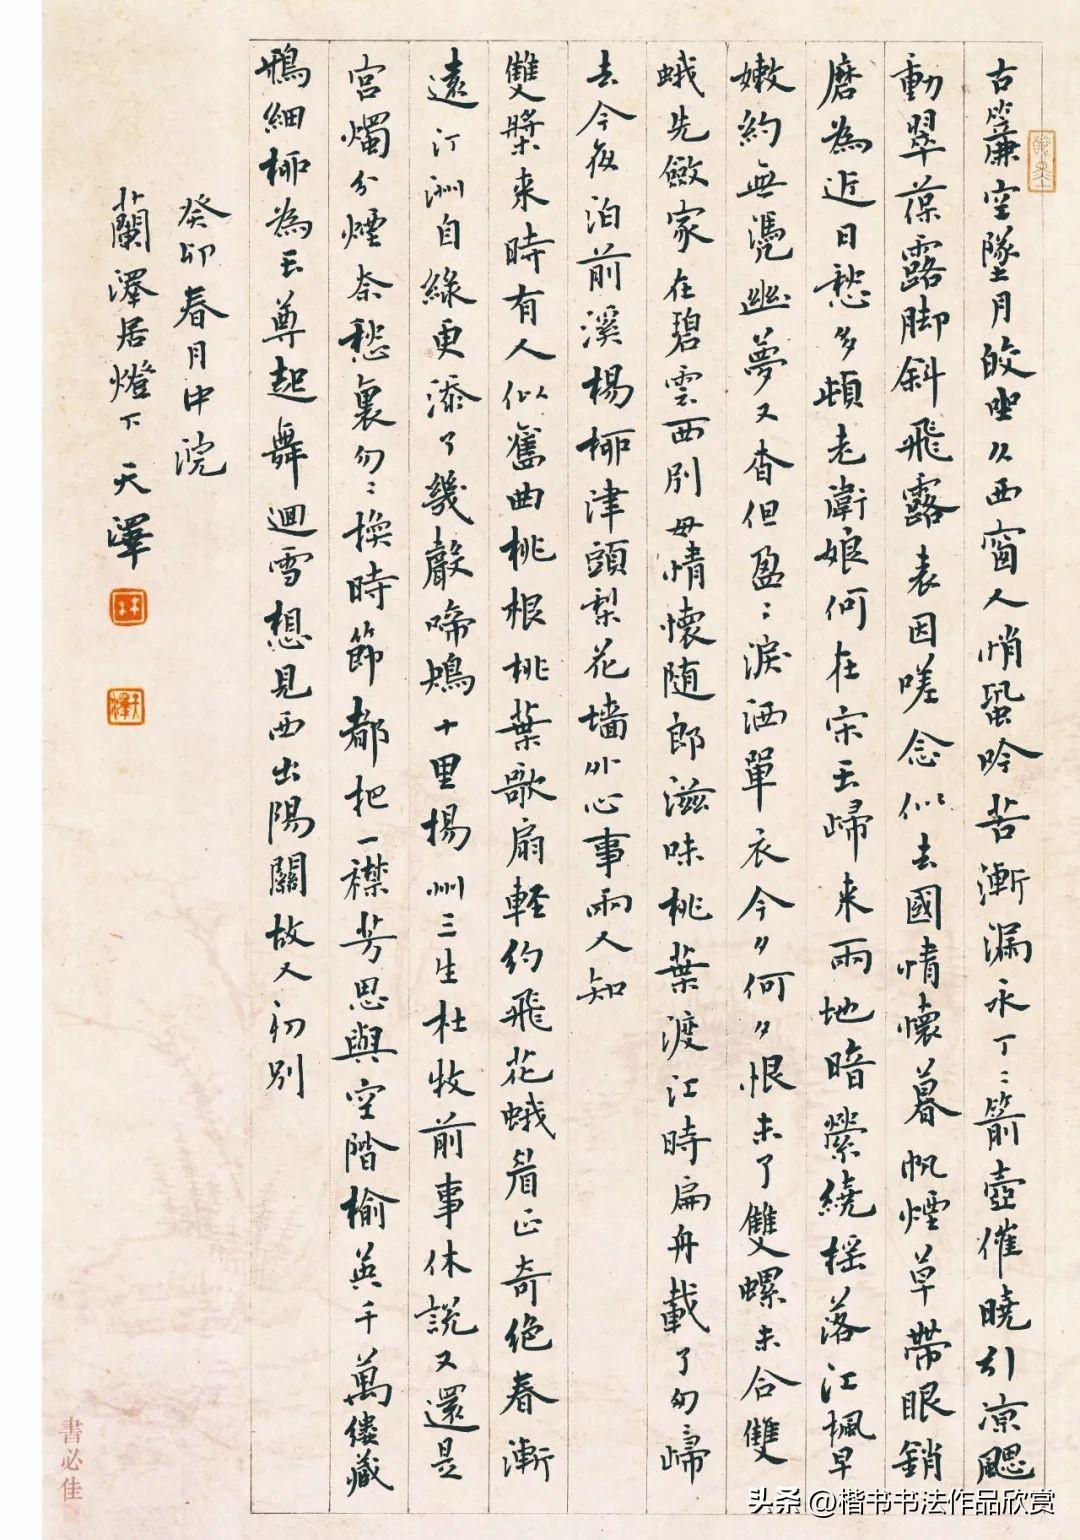 古簾空墜月皎坐久西窗人悄蛩吟苦漸漏永丁〻箭壺催曉引涼颸
動翠葆露脚斜飛雲表因嗟念似去國情懷暮帆煙草帶眼銷
磨為近日愁多頓老衛娘何在宋玉歸来兩地暗縈繞摇落江楓早
嫩約無憑幽夢又杳但盈〻淚洒單衣今夕何夕恨未了雙螺未合雙
蛾先斂家在碧雲西別母情懷随郎滋味桃葉渡江時扁舟載了匆歸
去今夜泊前溪楊柳津頭梨花墻外心事兩人知
雙槳来時有人似舊曲桃根桃葉歌扇軽約飛花蛾眉正奇绝春漸
遠汀洲自綠更添了幾聲啼鴂十里揚州三生杜牧前事休說又還是
宮燭分煙奈愁裏匆〻換時節都把一襟芳思與空階榆莢千萬縷藏
鴉細柳為玉尊起舞迴雪想見西出陽關故人初別
癸卯春月中浣
蘭澤居燈下 天澤
書必佳
头条 @楷书书法作品欣赏